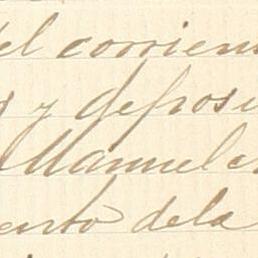 del corrien
y deposi
Manuela
ento dela